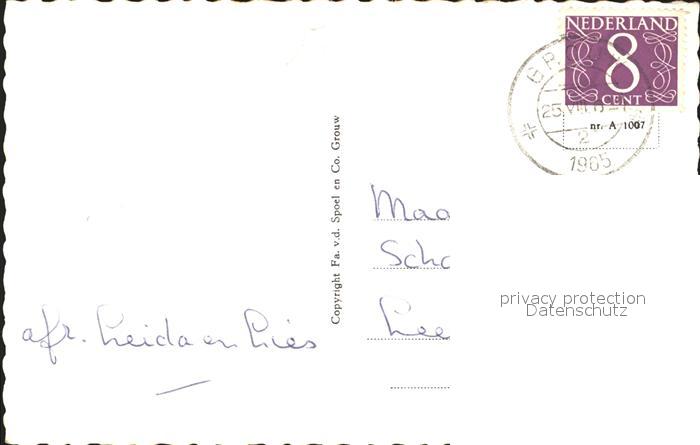 NEDERLAND
8
CENT
25.VIII
2
1965
nr. A 1007
Copyright Fa. v.d. Spoel en Co. Grouw
Maa
Scho
Lee
privacy protection
Datenschutz
afz. Leida en Lies